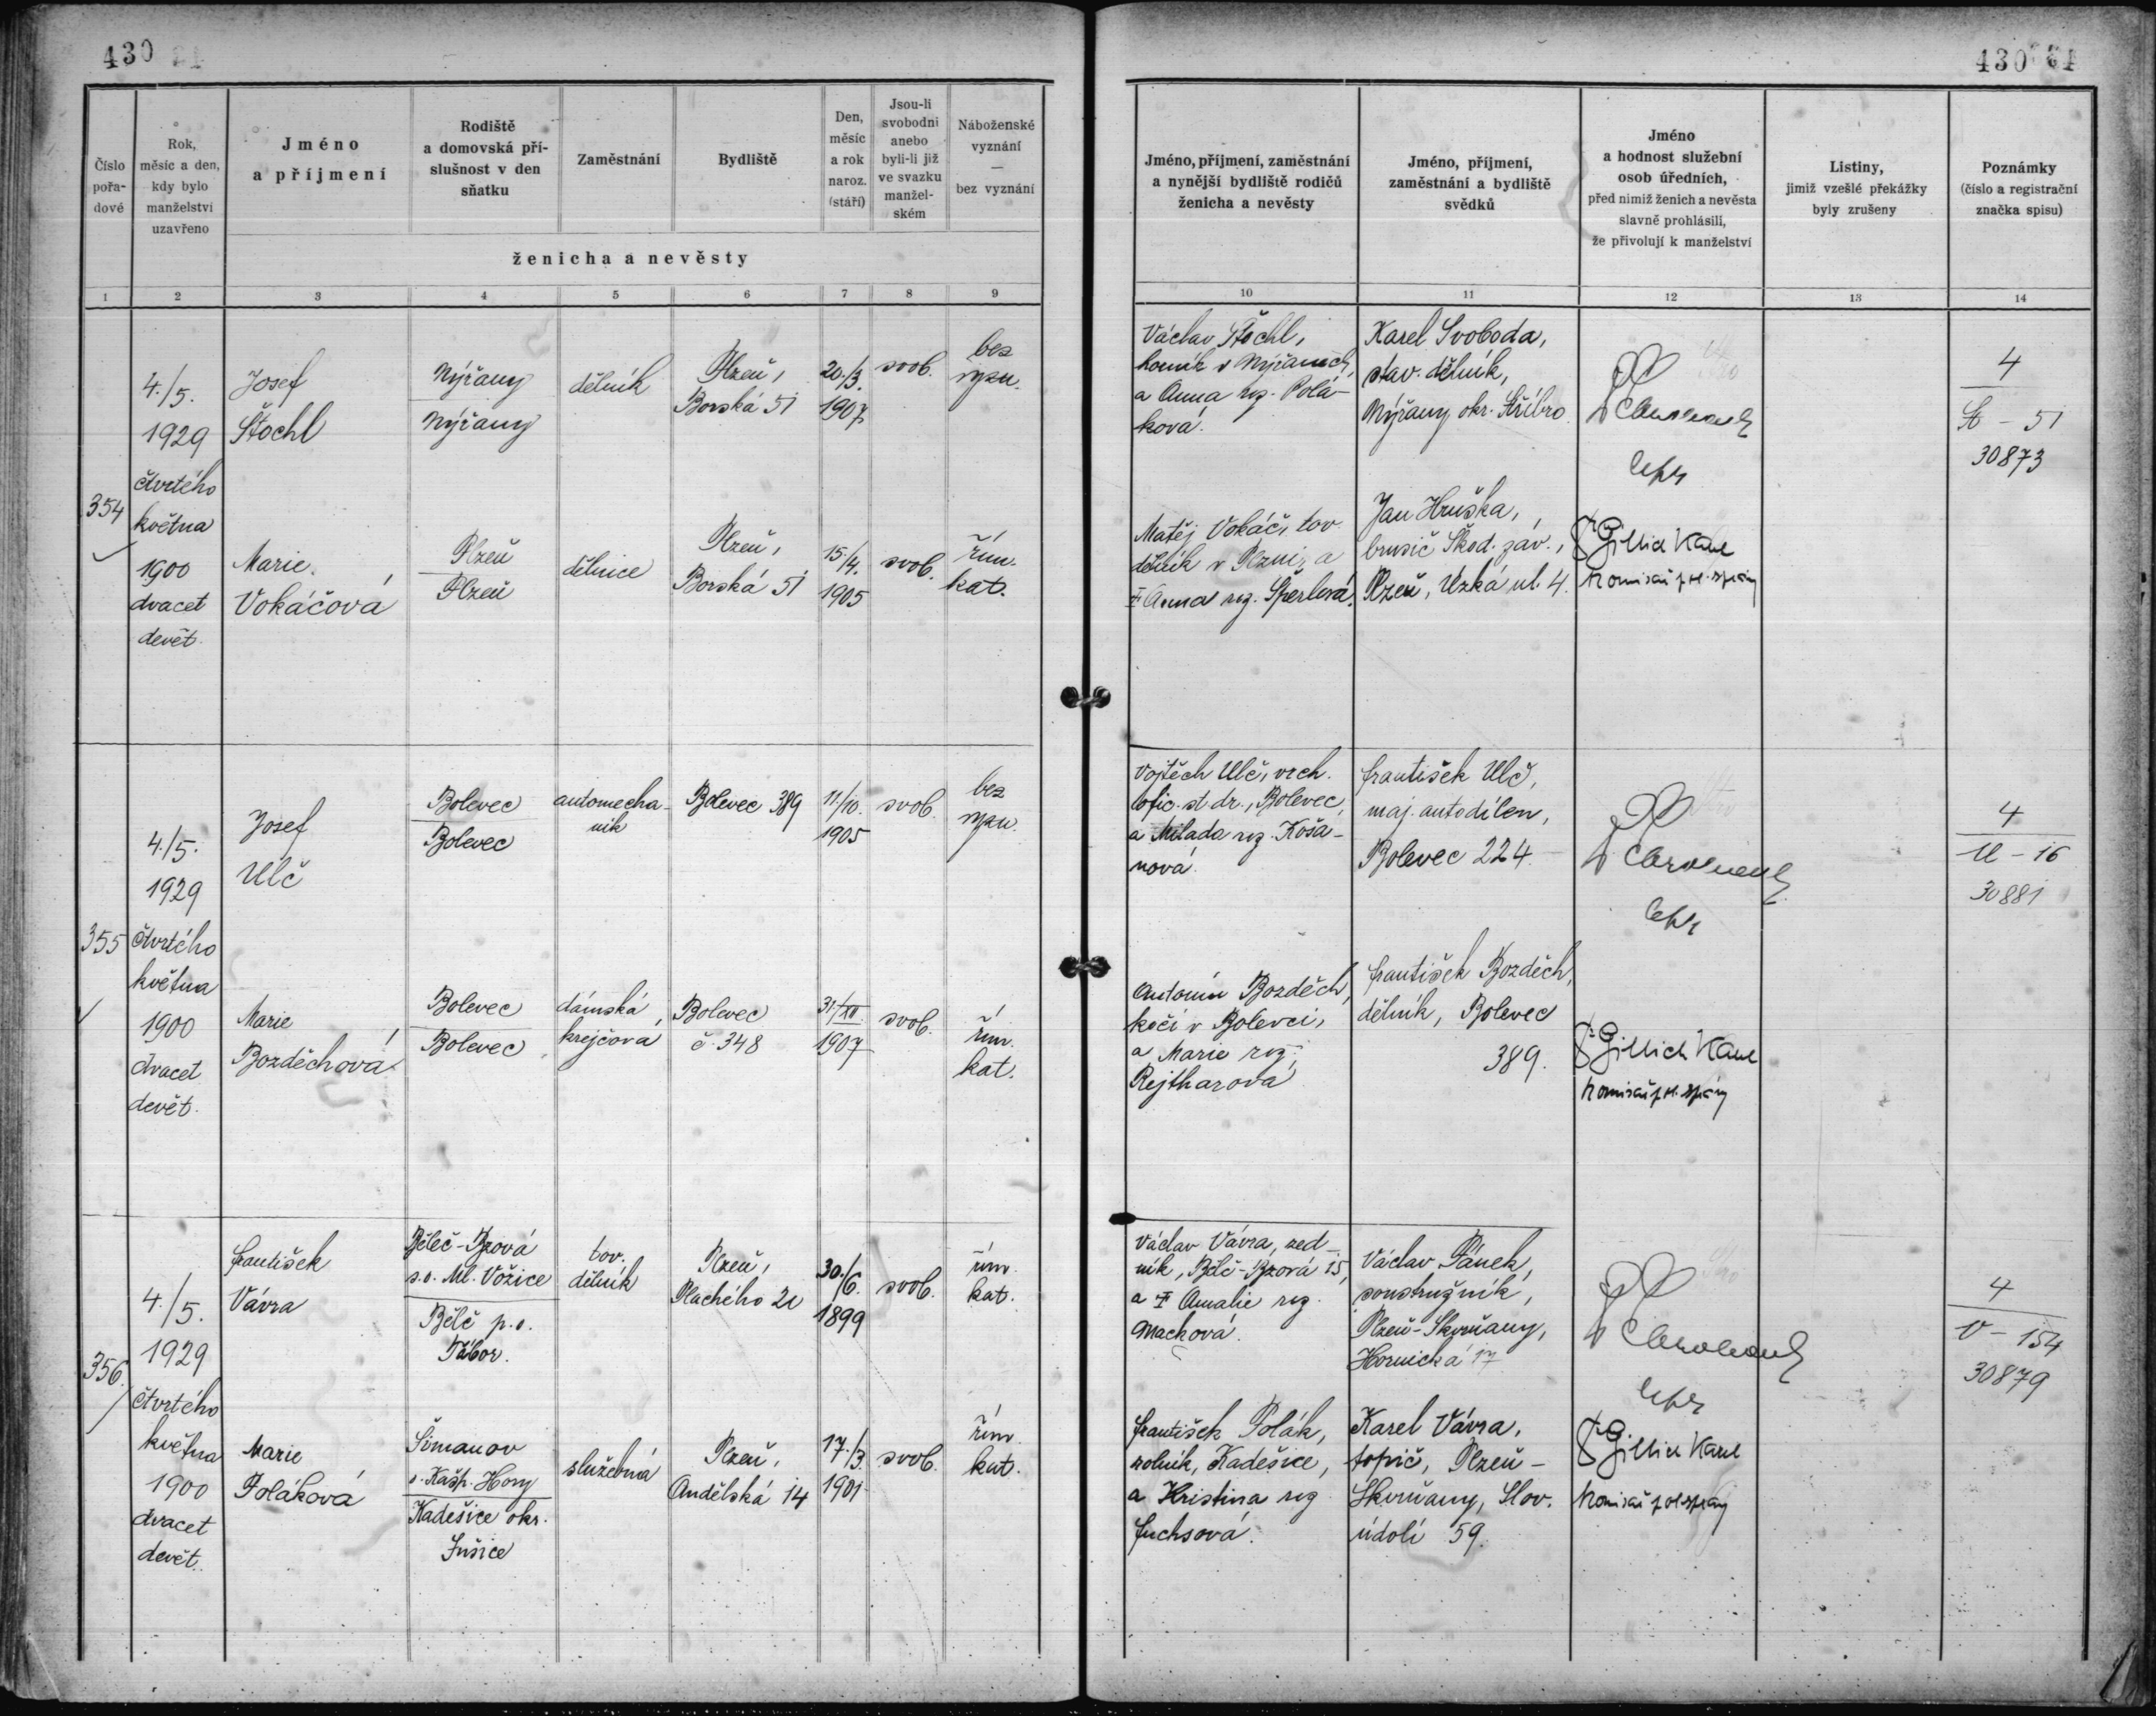 430
430
Číslo pořa-dové
Rok, měsíc a den, kdy bylo manželství uzavřeno
Jméno a příjmení
Rodiště a domovská pří-slušnost v den sňatku
Zaměstnání
Bydliště
Den, měsíc a rok naroz. (stáří)
Jsou-li svobodni anebo byli-li již ve svazku manžel-ském
Náboženské vyznání — bez vyznání
ženicha a nevěsty
Jméno, příjmení, zaměstnání a nynější bydliště rodičů ženicha a nevěsty
Jméno, příjmení, zaměstnání a bydliště svědků
Jméno a hodnost služební osob úředních, před nimiž ženich a nevěsta slavně prohlásili, že přivolují k manželství
Listiny, jimiž vzešlé překážky byly zrušeny
Poznámky (číslo a registrační značka spisu)
1 2 3 4 5 6 7 8 9 10 11 12 13 14
354
4./5.
1929
čtvrtého
května
1900
dvacet
devět.
Josef
Štochl
Nýřany
Nýřany
dělník
Plzeň,
Borská 51
20./3.
1907
svob.
bez
vyzn.
Václav Štochl,
horník v Nýřanech,
a Anna roz. Polá-
ková.
Karel Svoboda,
stav. dělník,
Nýřany okr. Stříbro
4
St - 51
30873
Marie
Vokáčová
Plzeň
Plzeň
dělnice
Plzeň,
Borská 51
15./4.
1905
svob.
řím.
kat.
Matěj Vokáč, tov.
dělník v Plzni, a
Anna roz. Šperlová.
Jan Hruška,
brusič Škod. záv.,
Plzeň, Úzká ul. 4.
Gillich Karel
komisař pol. správy
355
4./5.
1929
čtvrtého
května
1900
dvacet
devět.
Josef
Ulč
Bolevec
Bolevec
automecha-
nik
Bolevec 389
11./10.
1905
svob.
bez
vyzn.
Vojtěch Ulč, vrch.
ofic. st. dr., Bolevec,
a Milada roz. Koša-
nová.
František Ulč,
maj. autodílen,
Bolevec 224.
4
U - 16
30881
Marie
Bozděchová
Bolevec
Bolevec
dámská
krejčová
Bolevec
č. 348
31./XII.
1907
svob.
řím.
kat.
Antonín Bozděch,
kočí v Bolevci,
a Marie roz.
Rejtharová
František Bozděch,
dělník, Bolevec
389.
Gillich Karel
komisař pol. správy
356.
4./5.
1929
čtvrtého
května
1900
dvacet
devět.
František
Vávra
Běleč-Bzová
s.o. Ml. Vožice
Běleč p.o.
Tábor.
tov.
dělník
Plzeň,
Plachého 21
30./6.
1899
svob.
řím.
kat.
Václav Vávra, zed-
ník, Běleč-Bzová 15,
a Amalie roz.
Macková.
Václav Pánek,
soustružník,
Plzeň-Skvrňany,
Hornická 17
4
V - 154
30879
Marie
Poláková
Šimanov
s. Kašp. Hory
Kadešice okr.
Sušice
služebná
Plzeň,
Andělská 14
17./3.
1901
svob.
řím.
kat.
František Polák,
rolník, Kadešice,
a Kristina roz.
Fuchsová.
Karel Vávra,
topič, Plzeň-
Skvrňany, Slov.
údolí 59.
Gillich Karel
komisař pol. správy